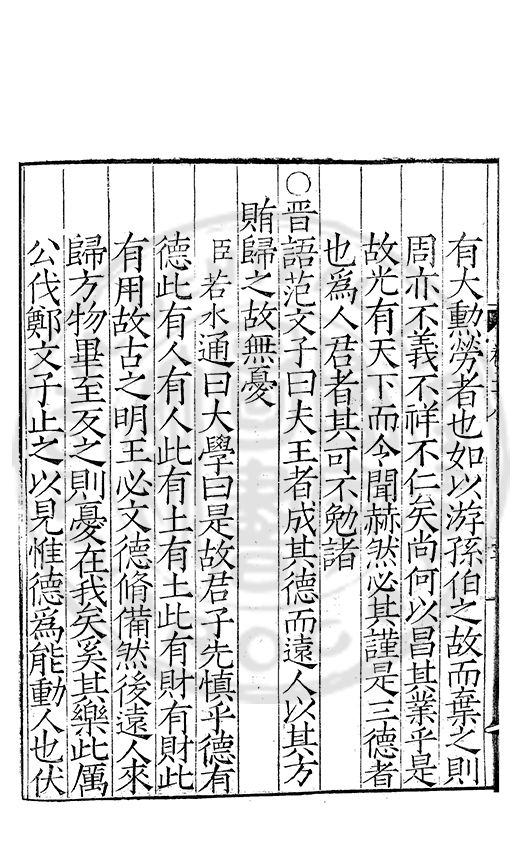 有大勲勞者也如以游孫伯之故而棄之則
周亦不義不祥不仁矣尚何以昌其業乎是
故光有天下而令聞赫然必其謹是三德者
也爲人君者其可不勉諸
○晋語范文子曰夫王者成其德而遠人以其方
賄歸之故無憂
臣若水通曰大學曰是故君子先慎乎德有
德此有人有人此有土有土此有財有財此
有用故古之明王必文德脩備然後遠人來
歸方物畢至反之則憂在我矣奚其樂此厲
公伐鄭文子止之以見惟德爲能動人也伏